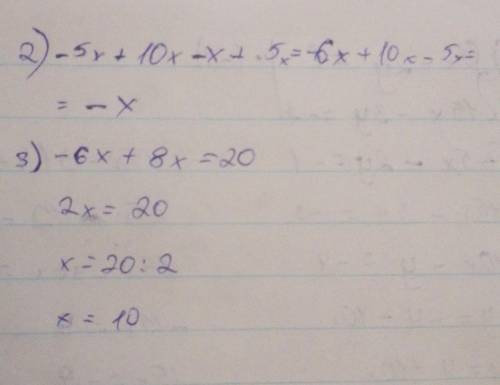 2) -5x + 10x - x + 5x = -6x + 10x - 5x =
= - x
3) -6x + 8x = 20
2x = 20
x = 20 : 2
x = 10